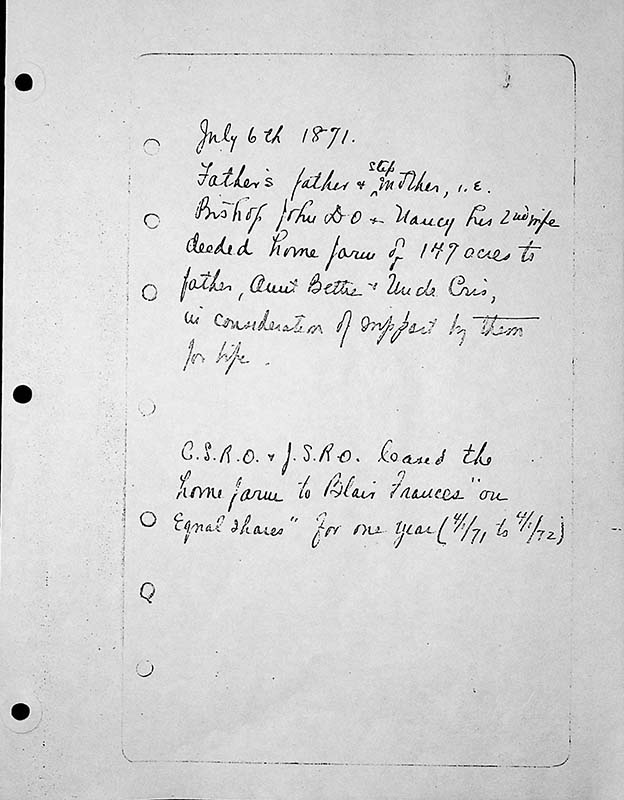 July 6th 1871.
Father's father & step mother, i.e.
Bishop John D O & Nancy his 2nd wife
deeded home farm of 147 acres to
father, Aunt Bettie & Uncle Cris,
in consideration of support by them
for life.
C.S.R.O. & J.S.R.O. leased the
home farm to Blair Frances "on
Equal shares" for one year (4/1/71 to 4/1/72)